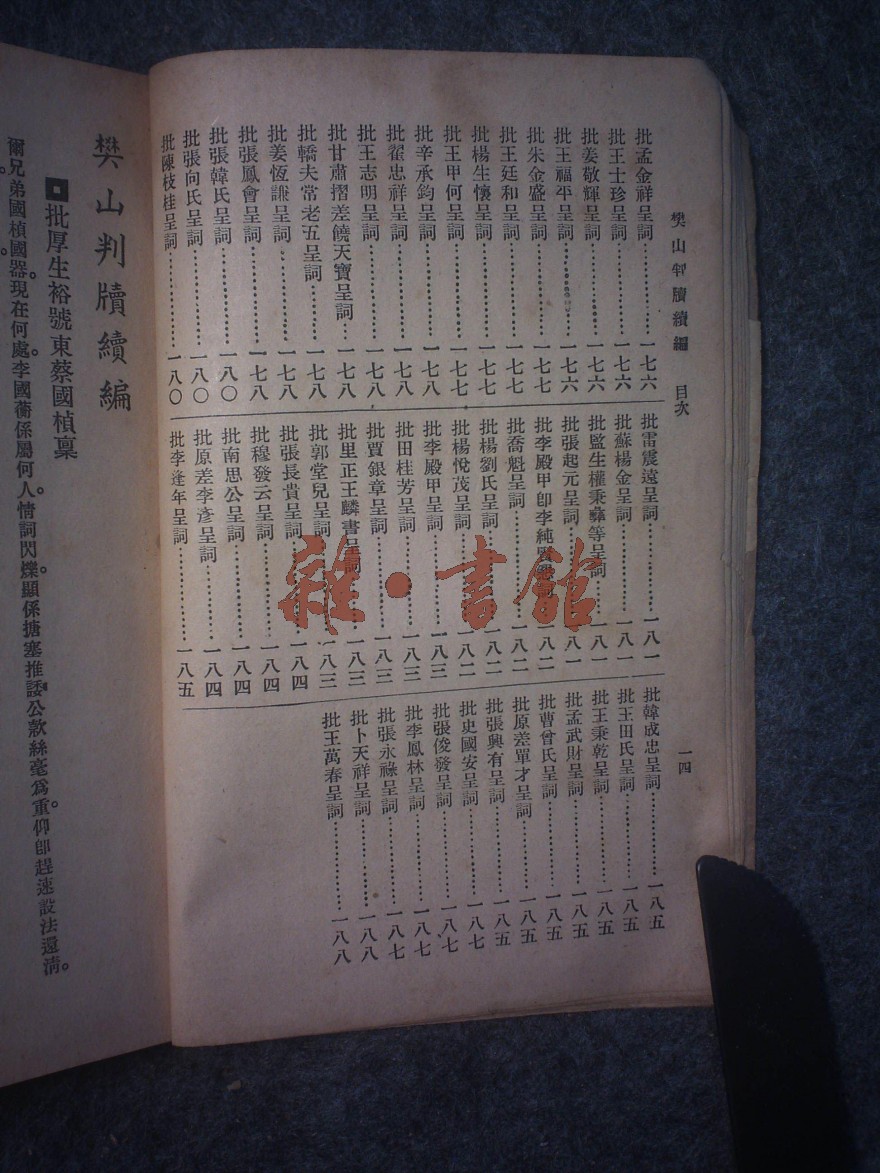 樊山判牘續編　目次
批孟金祥呈詞……一七六
批王士珍呈詞……一七六
批姜敬輝呈詞……一七六
批王福平呈詞……一七六
批朱金盛呈詞……一七七
批王廷和呈詞……一七七
批楊生懷呈詞……一七七
批王甲何呈詞……一七七
批辛承鈞呈詞……一七八
批翟忠祥呈詞……一七八
批王志明呈詞……一七八
批甘肅摺差饒天寶呈詞…一七八
批轎夫常老五呈詞……一七八
批姜恆謙呈詞……一七八
批張鳳會呈詞……一七八
批張韓氏呈詞……一八〇
批張向氏呈詞……一八〇
批陳枝桂呈詞……一八〇
批雷震遠呈詞……一八一
批蘇楊金呈詞……一八一
批監生權秉彝等呈詞……一八一
批張起元呈詞……一八一
批李殿甲卽李純呈詞……一八二
批喬魁呈詞……一八二
批楊劉氏呈詞……一八二
批楊悅茂呈詞……一八二
批李殿甲呈詞……一八三
批田桂芳呈詞……一八三
批賈銀章呈詞……一八三
批里正王麟書呈詞……一八三
批郭堂兒呈詞……一八三
批張長貴呈詞……一八四
批穆發云呈詞……一八四
批南思公呈詞……一八四
批原差李彥呈詞……一八四
批李逢年呈詞……一八五
批韓成忠呈詞……一八五
批王田氏呈詞……一八五
批王秉乾呈詞……一八五
批孟武財呈詞……一八五
批曹曾氏呈詞……一八五
批原差單才呈詞……一八五
批張興有呈詞……一八五
批史國安呈詞……一八七
批張俊發呈詞……一八七
批李鳳林呈詞……一八七
批張永祿呈詞……一八七
批卜天祥呈詞……一八八
批王萬春呈詞……一八八
一四
樊山判牘續編
批厚生裕號東蔡國楨稟
爾兄弟國楨國器。現在何處。李國蘅係屬何人。情詞閃爍。顯係搪塞推諉。公款絲毫爲重。仰卽趕速設法還淸。
雜·書館